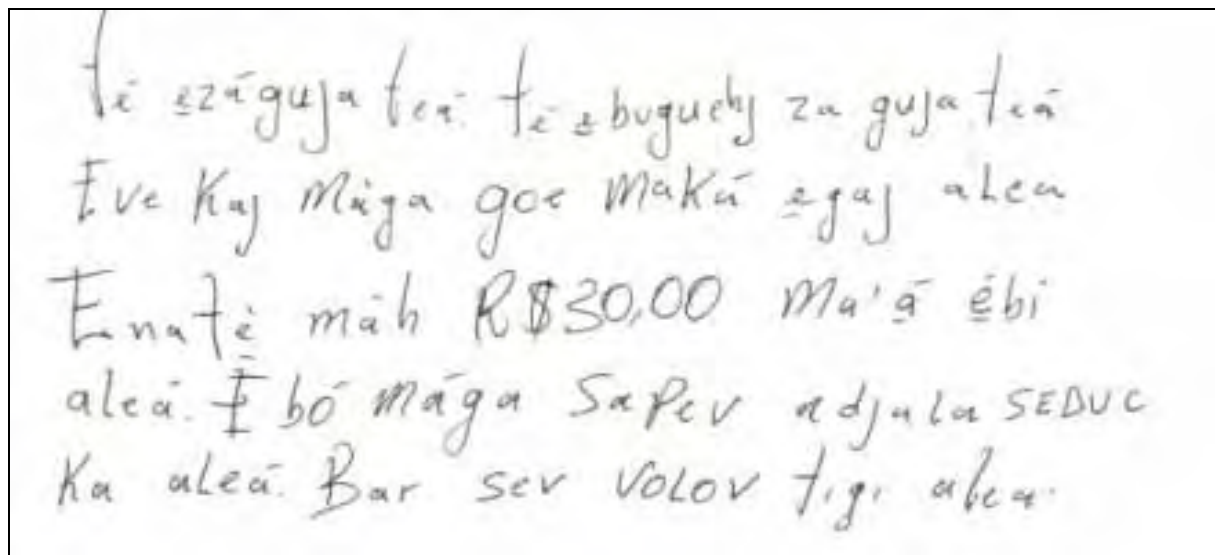 té e̲záguja teá. té e̲buguchy za guja teá
Eve Kaj Mága goe Maká e̲gaj alea
Enaté̲ máh R$30,00 Ma'á̲ é̲bi
aleá. E bó mága Sapev adjala SEDUC
Ka aleá. Bar sev volov tigi alea.